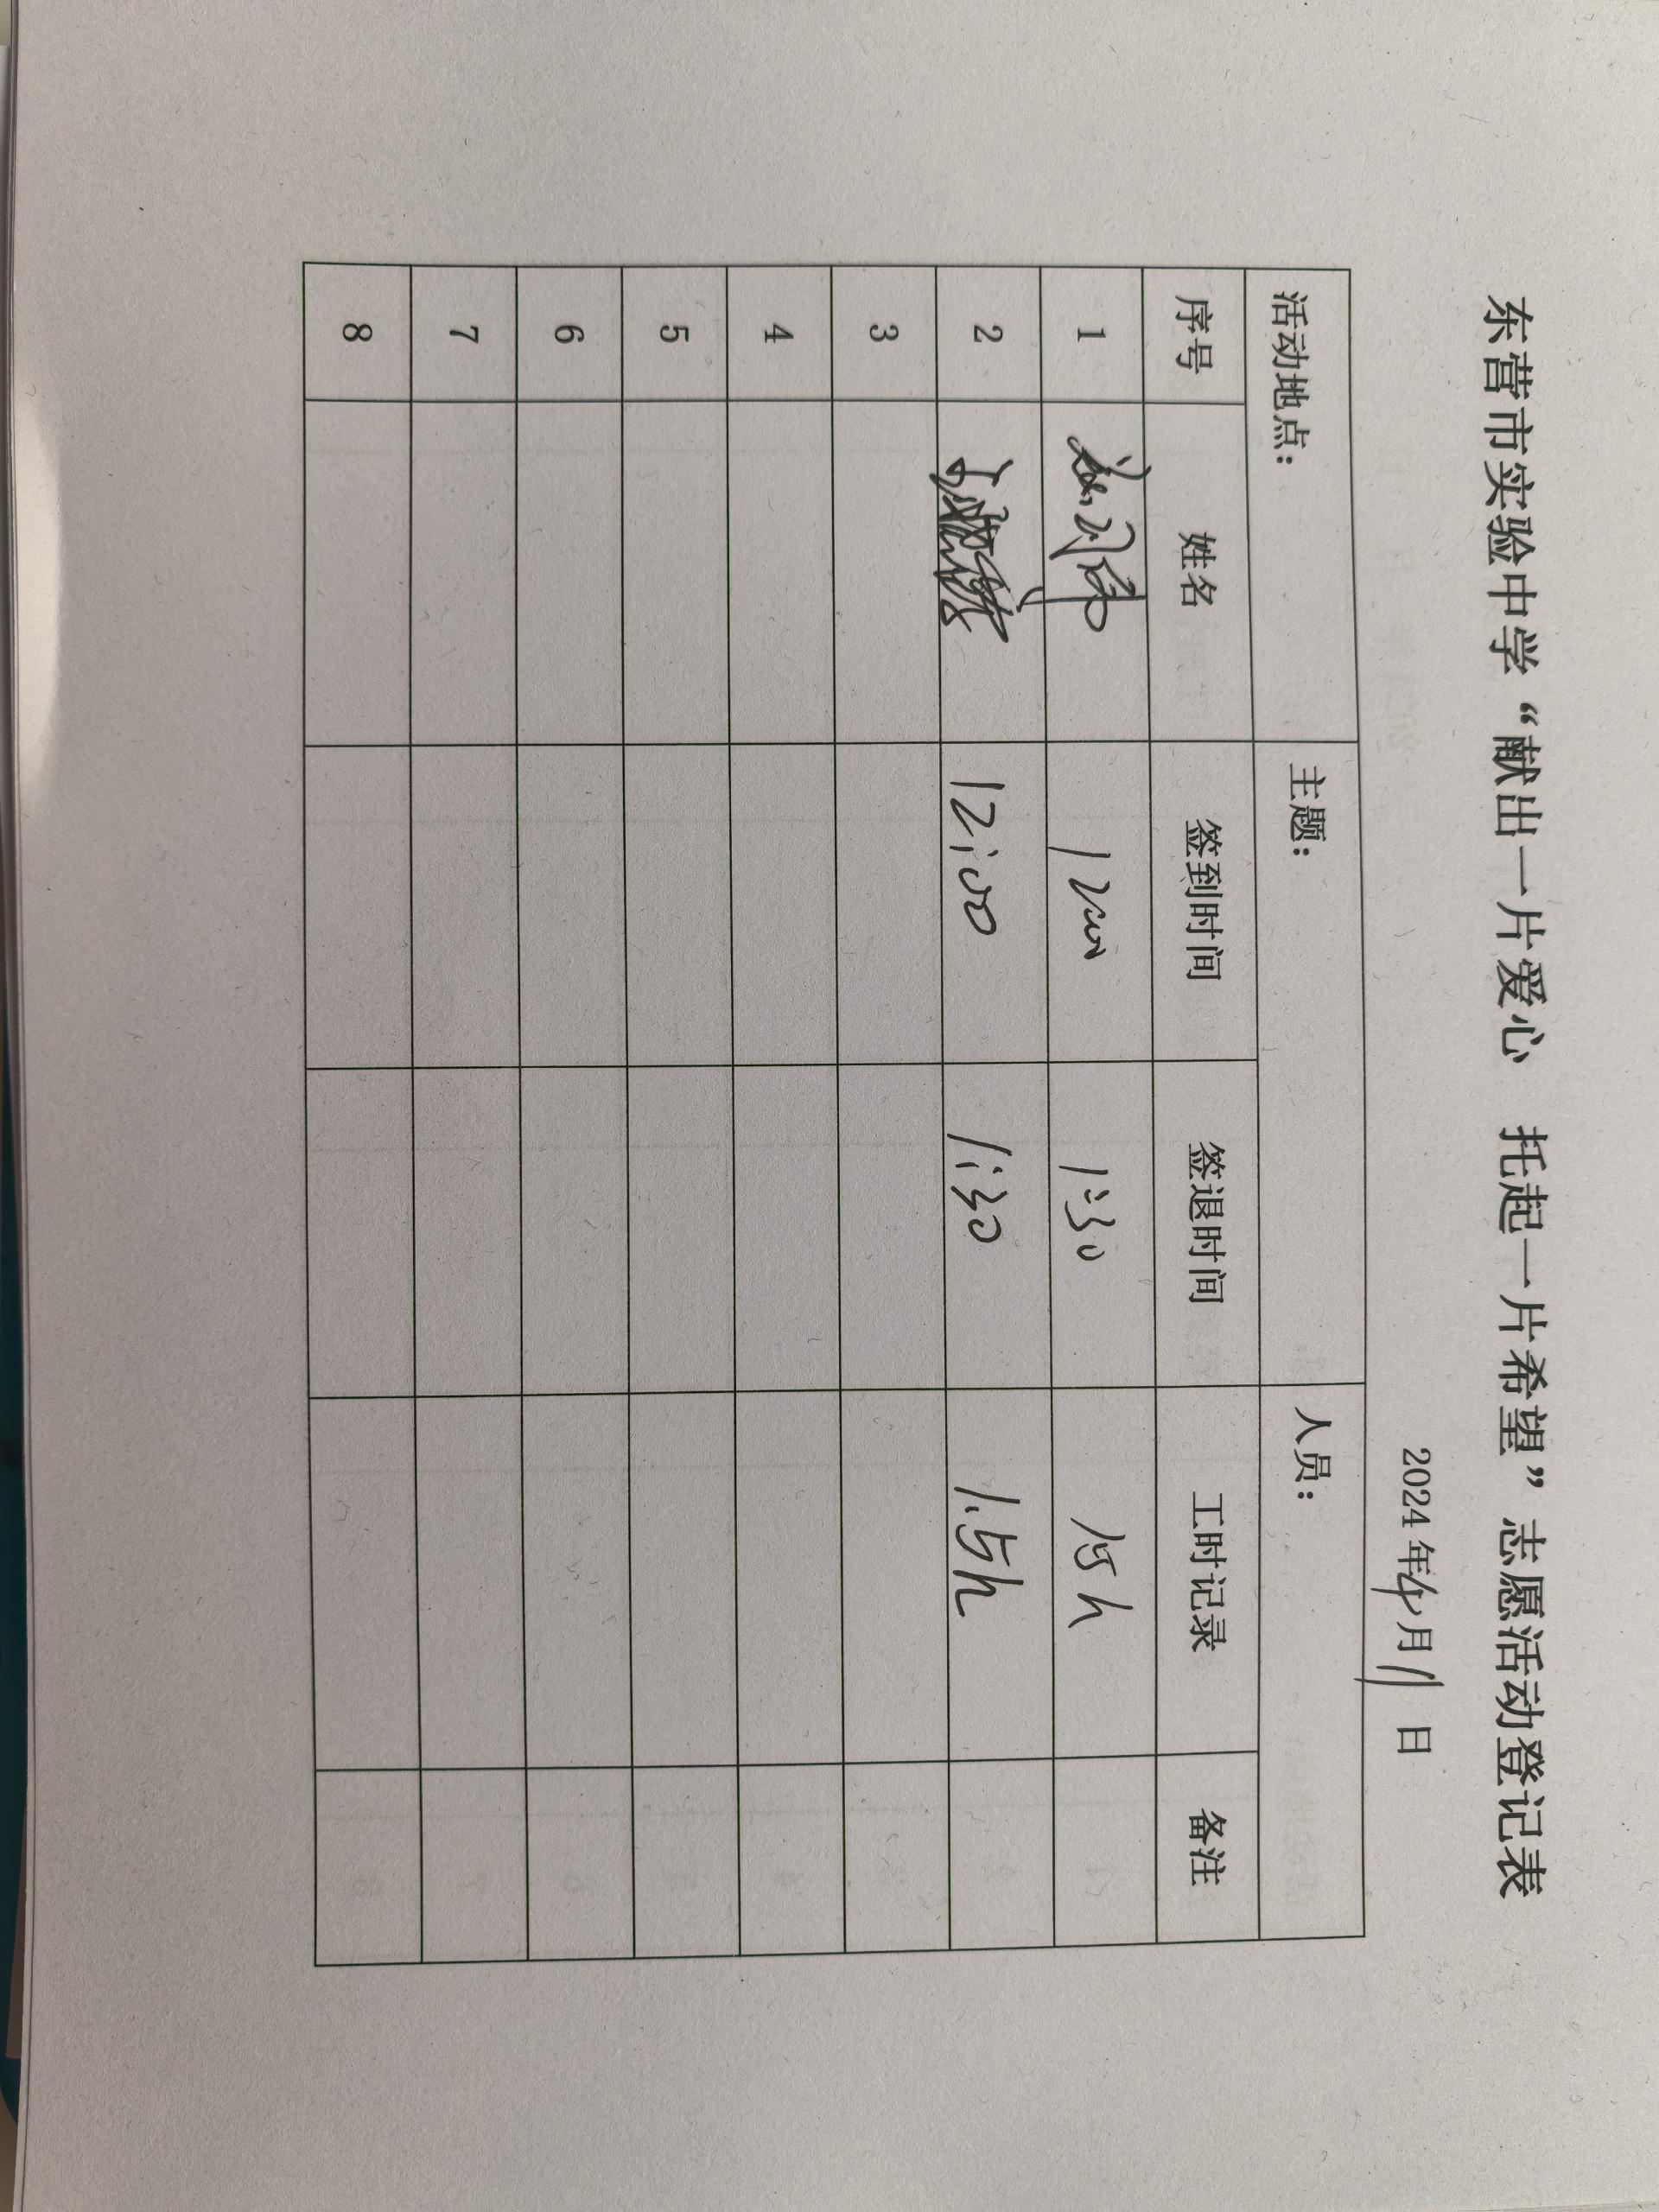 东营市实验中学“献出一片爱心 托起一片希望”志愿活动登记表
2024年4月11日
活动地点: 主题: 人员:
序号 姓名 签到时间 签退时间 工时记录 备注
1 1200 1:30 15h
2 12:00 1:30 1.5h
3
4
5
6
7
8